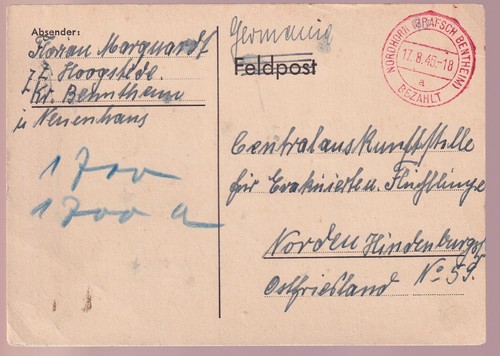 Absender:
Florian Marquardt
z. Z. Hoogstede.
Kr. Bentheim
ü Neuenhaus
1700
1700 a
Germania
Feldpost
NORDHORN (GRAFSCH BENTHEIM)
17.8.45.-18
a
BEZAHLT
Centralauskunftstelle
für Evakuierten u. Flüchtlinge
Norden Hindenburgst
Ostfriesland No 59.